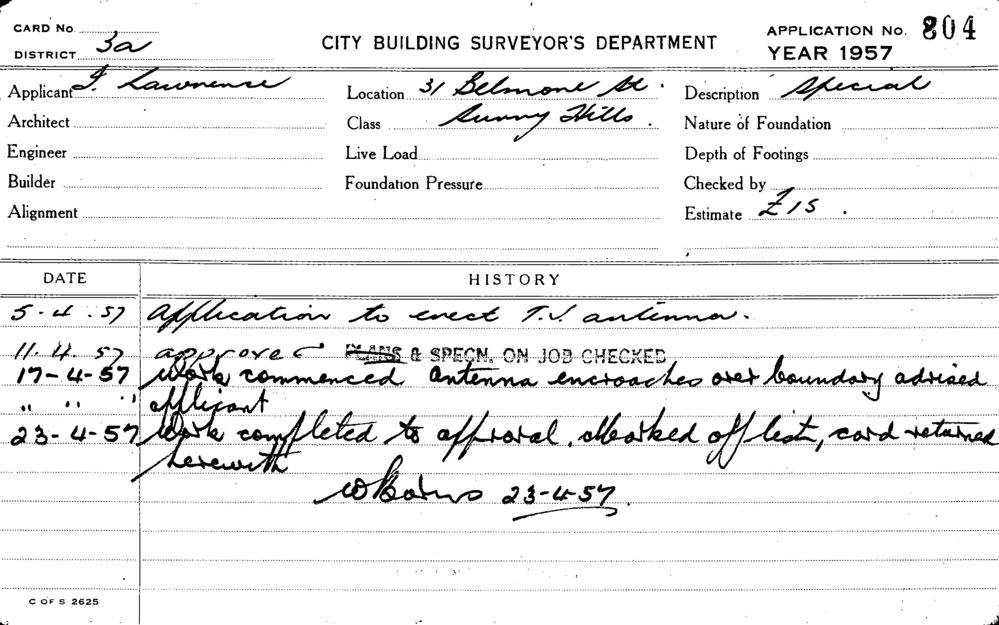 CARD No.
DISTRICT 3a
CITY BUILDING SURVEYOR'S DEPARTMENT
APPLICATION No. 804
YEAR 1957
Applicant J. Lawrence
Location 31 Belmore St.
Description Special
Architect
Class Surry Hills.
Nature of Foundation
Engineer
Live Load
Depth of Footings
Builder
Foundation Pressure
Checked by
Alignment
Estimate £15.
DATE
HISTORY
5.4.57 Application to erect T.V. antenna.
11.4.57 approved PLANS & SPECN. ON JOB CHECKED
17-4-57 Work commenced antenna encroaches over boundary advised
" " " applicant
23-4-57 Work completed to approval. Marked off list, card returned
herewith
23-4-57.
C OF S 2625